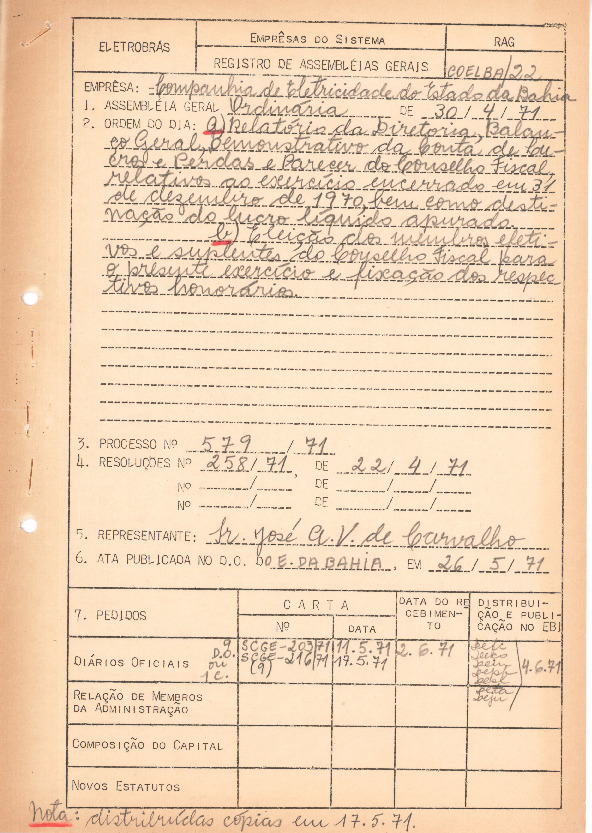 ELETROBRÁS
EMPRÊSAS DO SISTEMA
RAG
REGISTRO DE ASSEMBLÉIAS GERAIS
COELBA/22
EMPRÊSA: Companhia de Eletricidade do Estado da Bahia
1. ASSEMBLÉIA GERAL Ordinária DE 30/4/71
2. ORDEM DO DIA: a) Relatório da Diretoria, Balan-
ço Geral, Demonstrativo da Conta de Lu-
cros e Perdas e Parecer do Conselho Fiscal,
relativos ao exercício encerrado em 31
de dezembro de 1970, bem como desti-
nação do lucro líquido apurado.
b) Eleição dos membros efeti-
vos e suplentes do Conselho Fiscal para
o presente exercício e fixação dos respec
tivos honorários.
3. PROCESSO Nº 579 / 71
4. RESOLUÇÕES Nº 258/71, DE 22/4/71
Nº / DE / /
Nº / DE / /
5. REPRESENTANTE: Sr. José A.V. de Carvalho
6. ATA PUBLICADA NO D.O. DO E. DA BAHIA, EM 26/5/71
7. PEDIDOS
CARTA
Nº
DATA
DATA DO RE
CEBIMEN-
TO
DISTRIBUI-
ÇÃO E PUBLI-
CAÇÃO NO EBI
DIÁRIOS OFICIAIS
9
D.O.
ou
J.C.
SCGE-203/71 11.5.71 2.6.71
SCGE-216/71 17.5.71
(9)
4.6.71
RELAÇÃO DE MEMBROS
DA ADMINISTRAÇÃO
COMPOSIÇÃO DO CAPITAL
NOVOS ESTATUTOS
Nota: distribuídas cópias em 17.5.71.